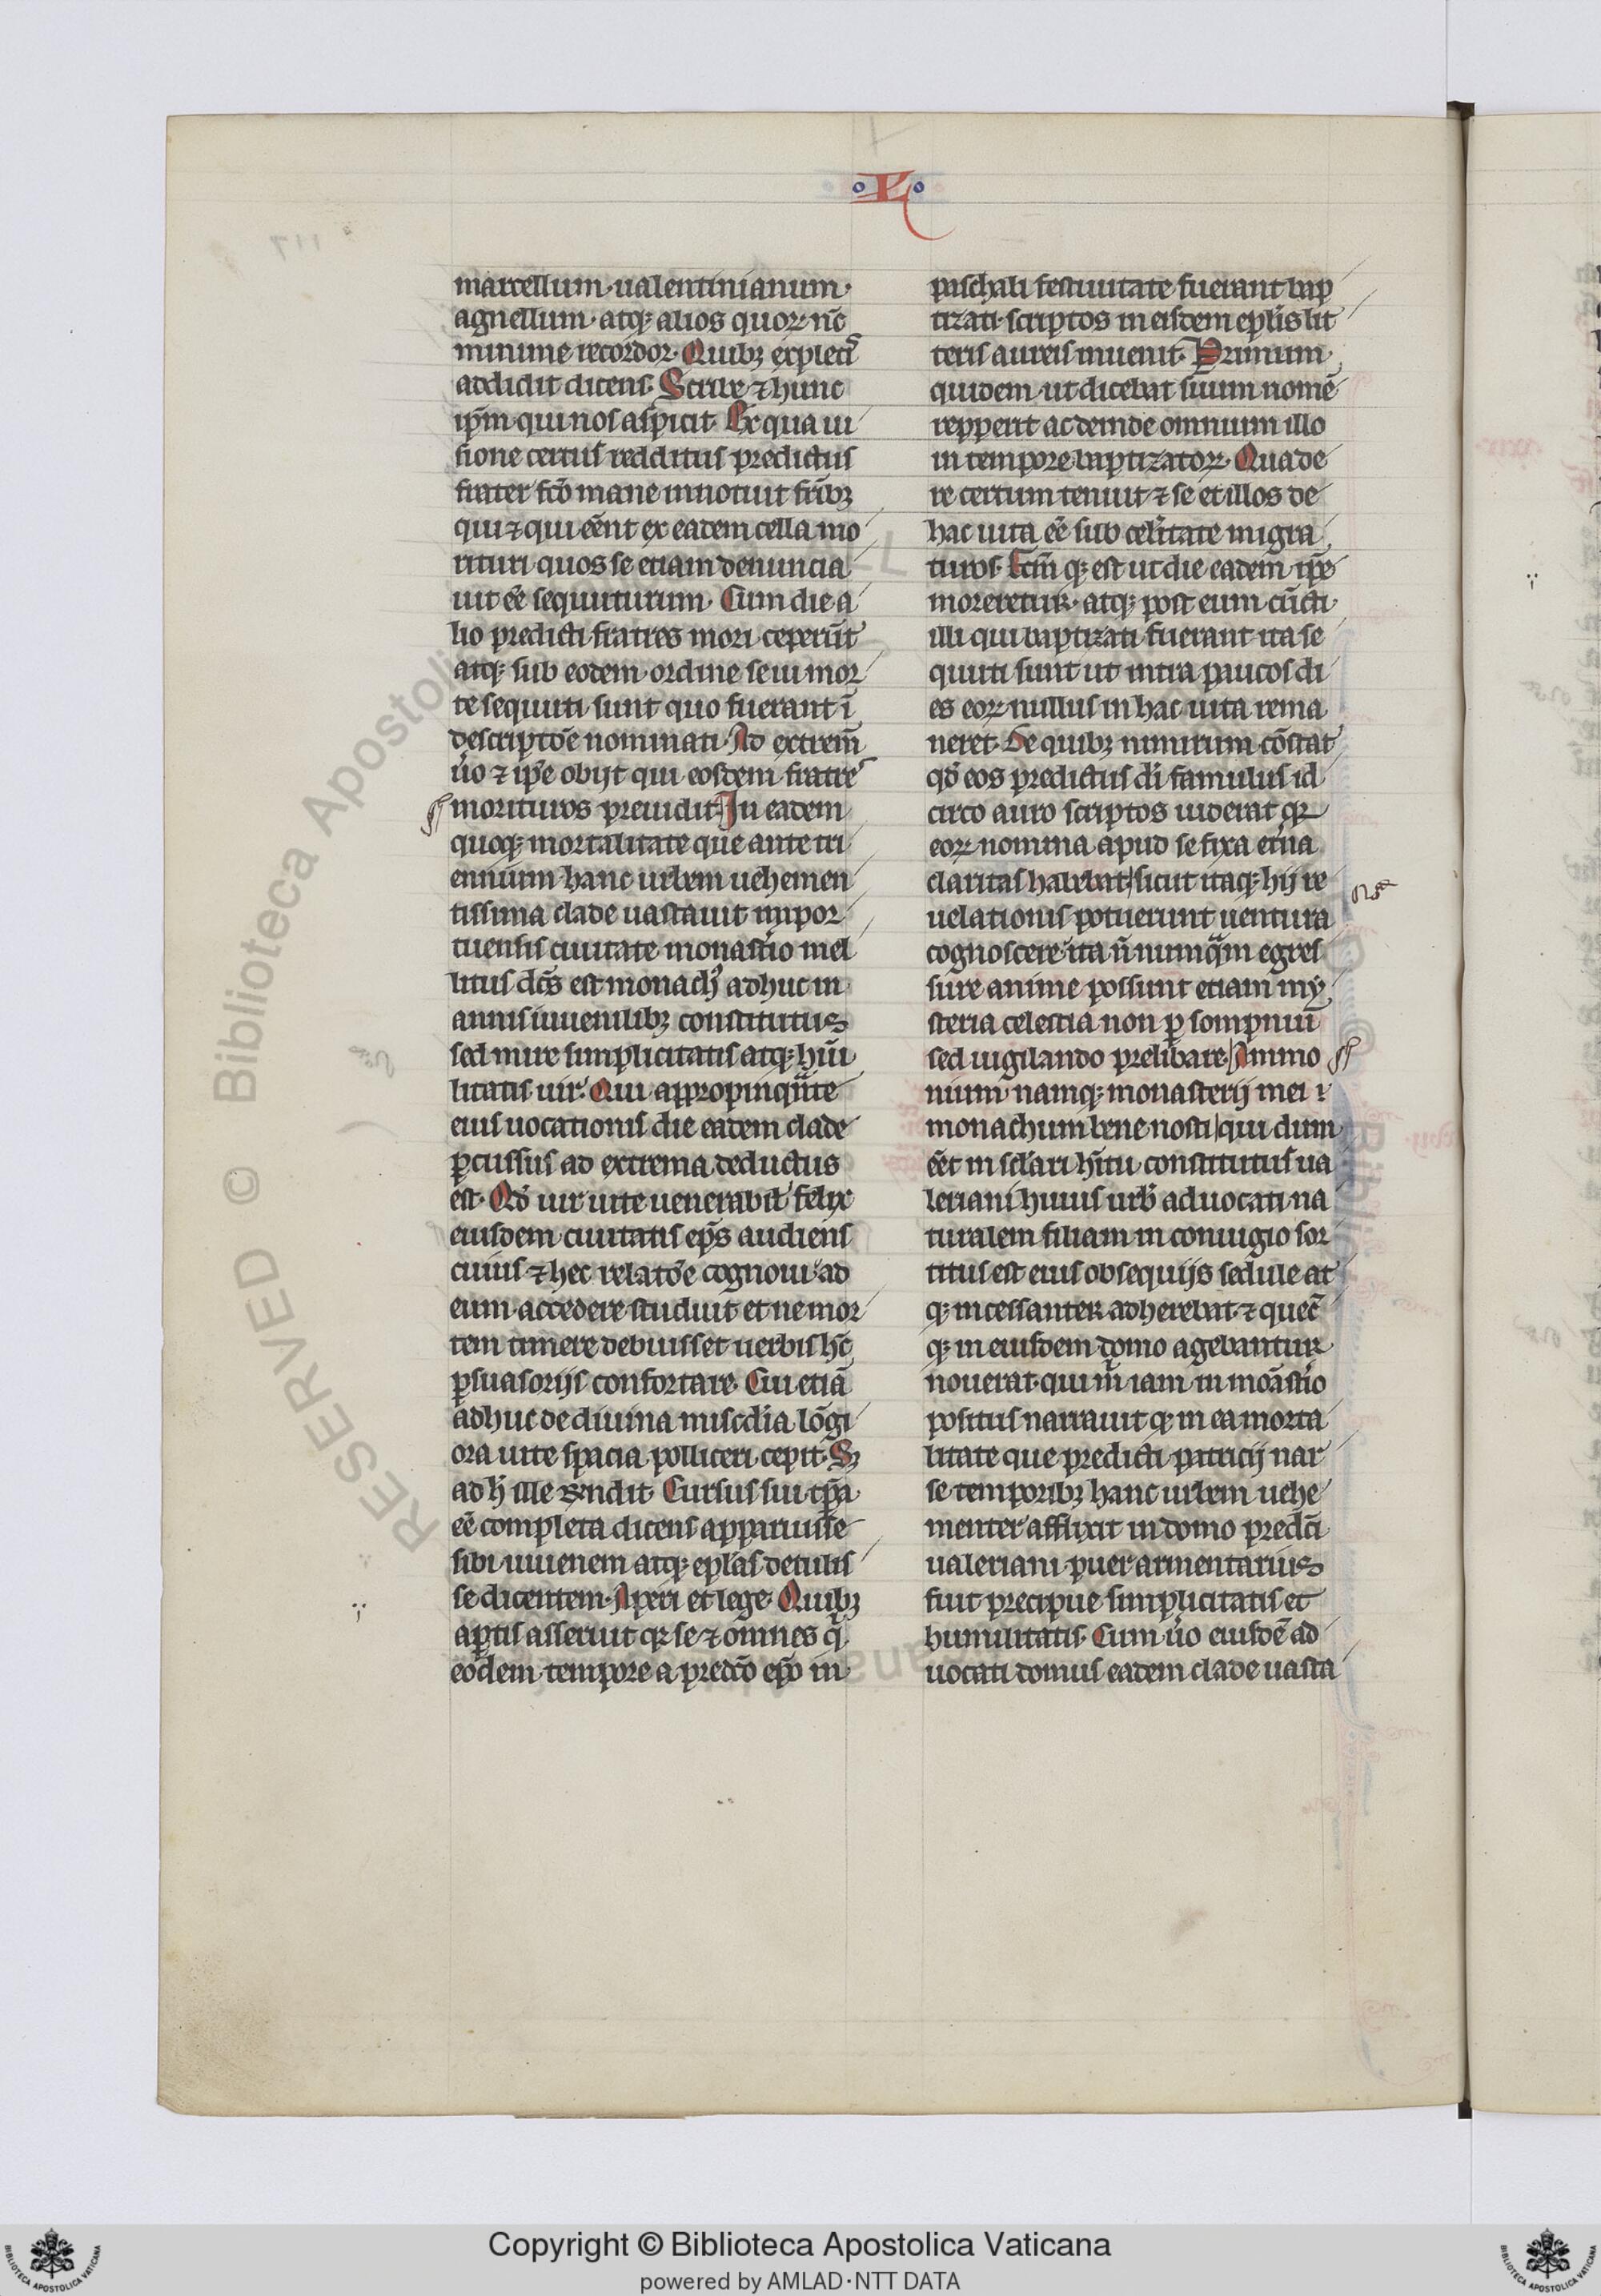 L
marcellum· ualentinianum·
agnellum· atqꝫ alios quoꝝ nūc
minime recordor· Quibꝫ expletꝭ
addidit dicens· Scribe ⁊ hunc
ip̄m qui nos aspicit· Ex qua ui
sione certus redditus predictus
frater fc̄o mane innotuit fr̄ibꝫ
qui ⁊ qui eēnt ex eadem cella mo
rituri quos se etiam denuncia
uit eē sequuturum· Cum die a
lio predicti fratres mori ceperūt
atqꝫ sub eodem ordine se in mor
te sequuti sunt quo fuerant ī
descriptōe nominati· Ad extrem̄
ůo ⁊ ip̄e obijt qui eosdem fratres
morituros preuidit In eadem
quoqꝫ mortalitate que ante tri
ennium hanc urbem uehemen
tissima clade uastauit in por
tuensis ciuitate monastio mel
litus dc̄s est monachꝰ adhuc in
annis iuuenilibꝫ constitutus
sed mire simplicitatis atqꝫ hūi
litatis uir· Qui appropinquāte
eius uocationis die eadem clade
ꝑcussus ad extrema deductus
est· Qd̄ uir uite uenerabil̓ felix
eiusdem ciuitatis ep̄s audiens
cuius ⁊ hec relatōe cognoui ad
eum accedere studuit et ne mor
tem timere debuisset uerbis hc̄
ꝑsuasorijs confortare· Cui etiā
adhuc de diuina miscd̄ia lōgi
ora uite spacia polliceri cepit· Sꝫ
ad h̓ ille rn̄dit· Cursus sui tp̄a
eē completa dicens apparuisse
sibi iuuenem atqꝫ epl̄as detulis
se dicentem· Aperi et lege· Quibꝫ
aptis asseruit qꝛ se ⁊ omnes q̓
eodem tempore a predc̄o ep̄o in
paschali festiuitate fuerant bap
tizati· scriptos in eisdem epl̄is lit
teris aureis inuenit· Primum
quidem ut dicebat suum nomē
repperit ac deinde omnium illo
in tempore baptizatoꝝ· Qua de
re certum tenuit ⁊ se et illos de
hac uita eē sub celritate migra
turos· Fc̄m qꝫ est ut die eadem ip̄e
moreretur· atqꝫ post eum cūcti
illi qui baptizati fuerant ita se
quuti sunt ut intra paucos di
es eoꝝ nullus in hac uita rema
neret· De quibꝫ nimirum cōstat
qd̄ eos predictus di̓ famulus id
circo auro scriptos uiderat qꝛ
eoꝝ nomina apud se fixa et̓na
claritas habebat sicut itaqꝫ hij re
uelationis potuerunt uentura
cognoscere ita n̄ numqm̄ egres
sure anime possunt etiam my
steria celestia non ꝑ sompniū
sed uigilando prelibare Ammo
nium namqꝫ monasterij mei
monachum bene nosti qui dum
eēt in scl̓ari hitu constitutus ua
leriani huius urb̓ aduocati na
turalem filiam in coniugio sor
titus est eius obsequijs sedule at
qꝫ incessanter adherebat ⁊ quec̄
qꝫ in eiusdem domo agebantur
nouerat qui m̓ iam in moāst̓io
positus narrauit qꝫ in ea morta
litate que predicti patricij nar
se temporibꝫ hanc urbem uehe
menter afflixit in domo predc̄i
ualeriani puer armentarius
fuit precipue simplicitatis et
humilitatis· Cum ůo eiusdē ad
uocati domus eadem clade uasta
RESERVED © Biblioteca Apostoli
Copyright © Biblioteca Apostolica Vaticana
powered by AMLAD·NTT DATA